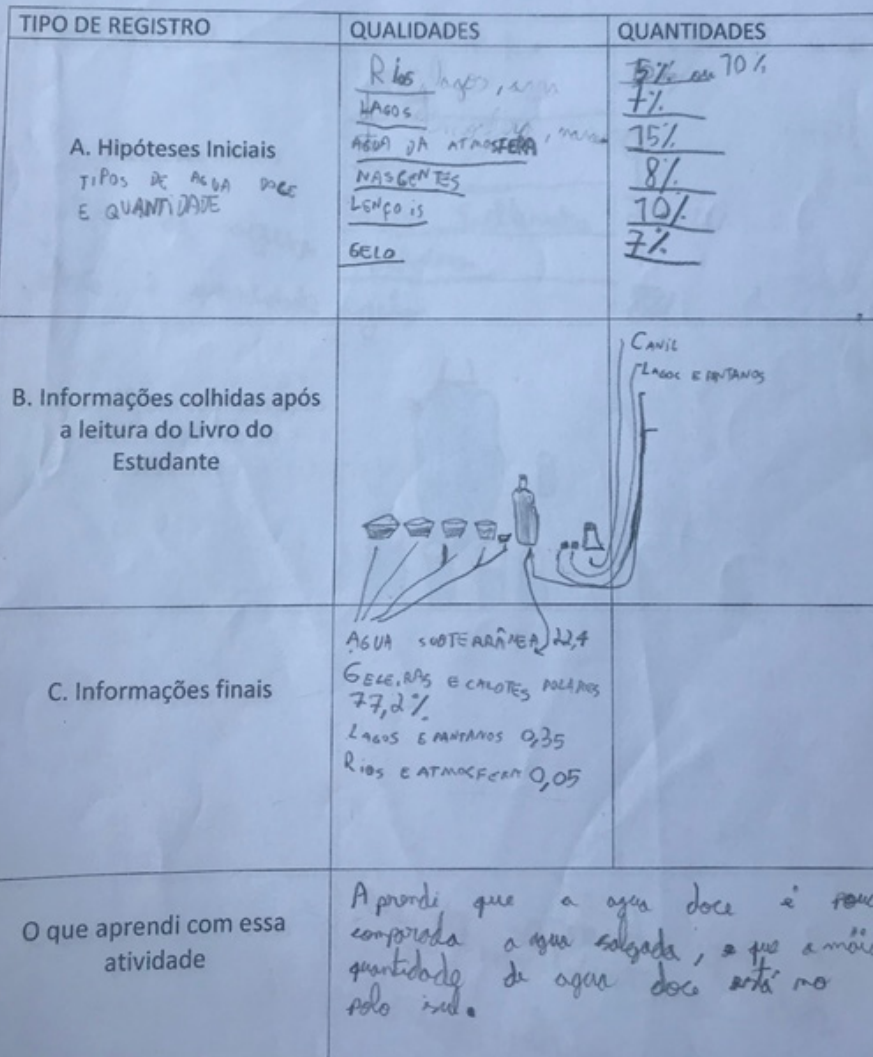 TIPO DE REGISTRO
QUALIDADES
QUANTIDADES
A. Hipóteses Iniciais
TIPOS DE AGUA DOCE
E QUANTIDADE
Rios, lagos,
LAGOS
AGUA DA ATMOSFERA
NASCENTES
LENÇOIS
GELO
5% ou 70%
7%
15%
8%
10%
7%
B. Informações colhidas após
a leitura do Livro do
Estudante
LAGOS E PANTANOS
C. Informações finais
AGUA SUBTERRÂNEA 22,4
GELEIRAS E CALOTES POLARES
77,2%
LAGOS E PANTANOS 0,35
RIOS E ATMOSFERA 0,05
O que aprendi com essa
atividade
Aprendi que a agua doce é
comparada a agua salgada, e que a
quantidade de agua doce está no
polo sul.